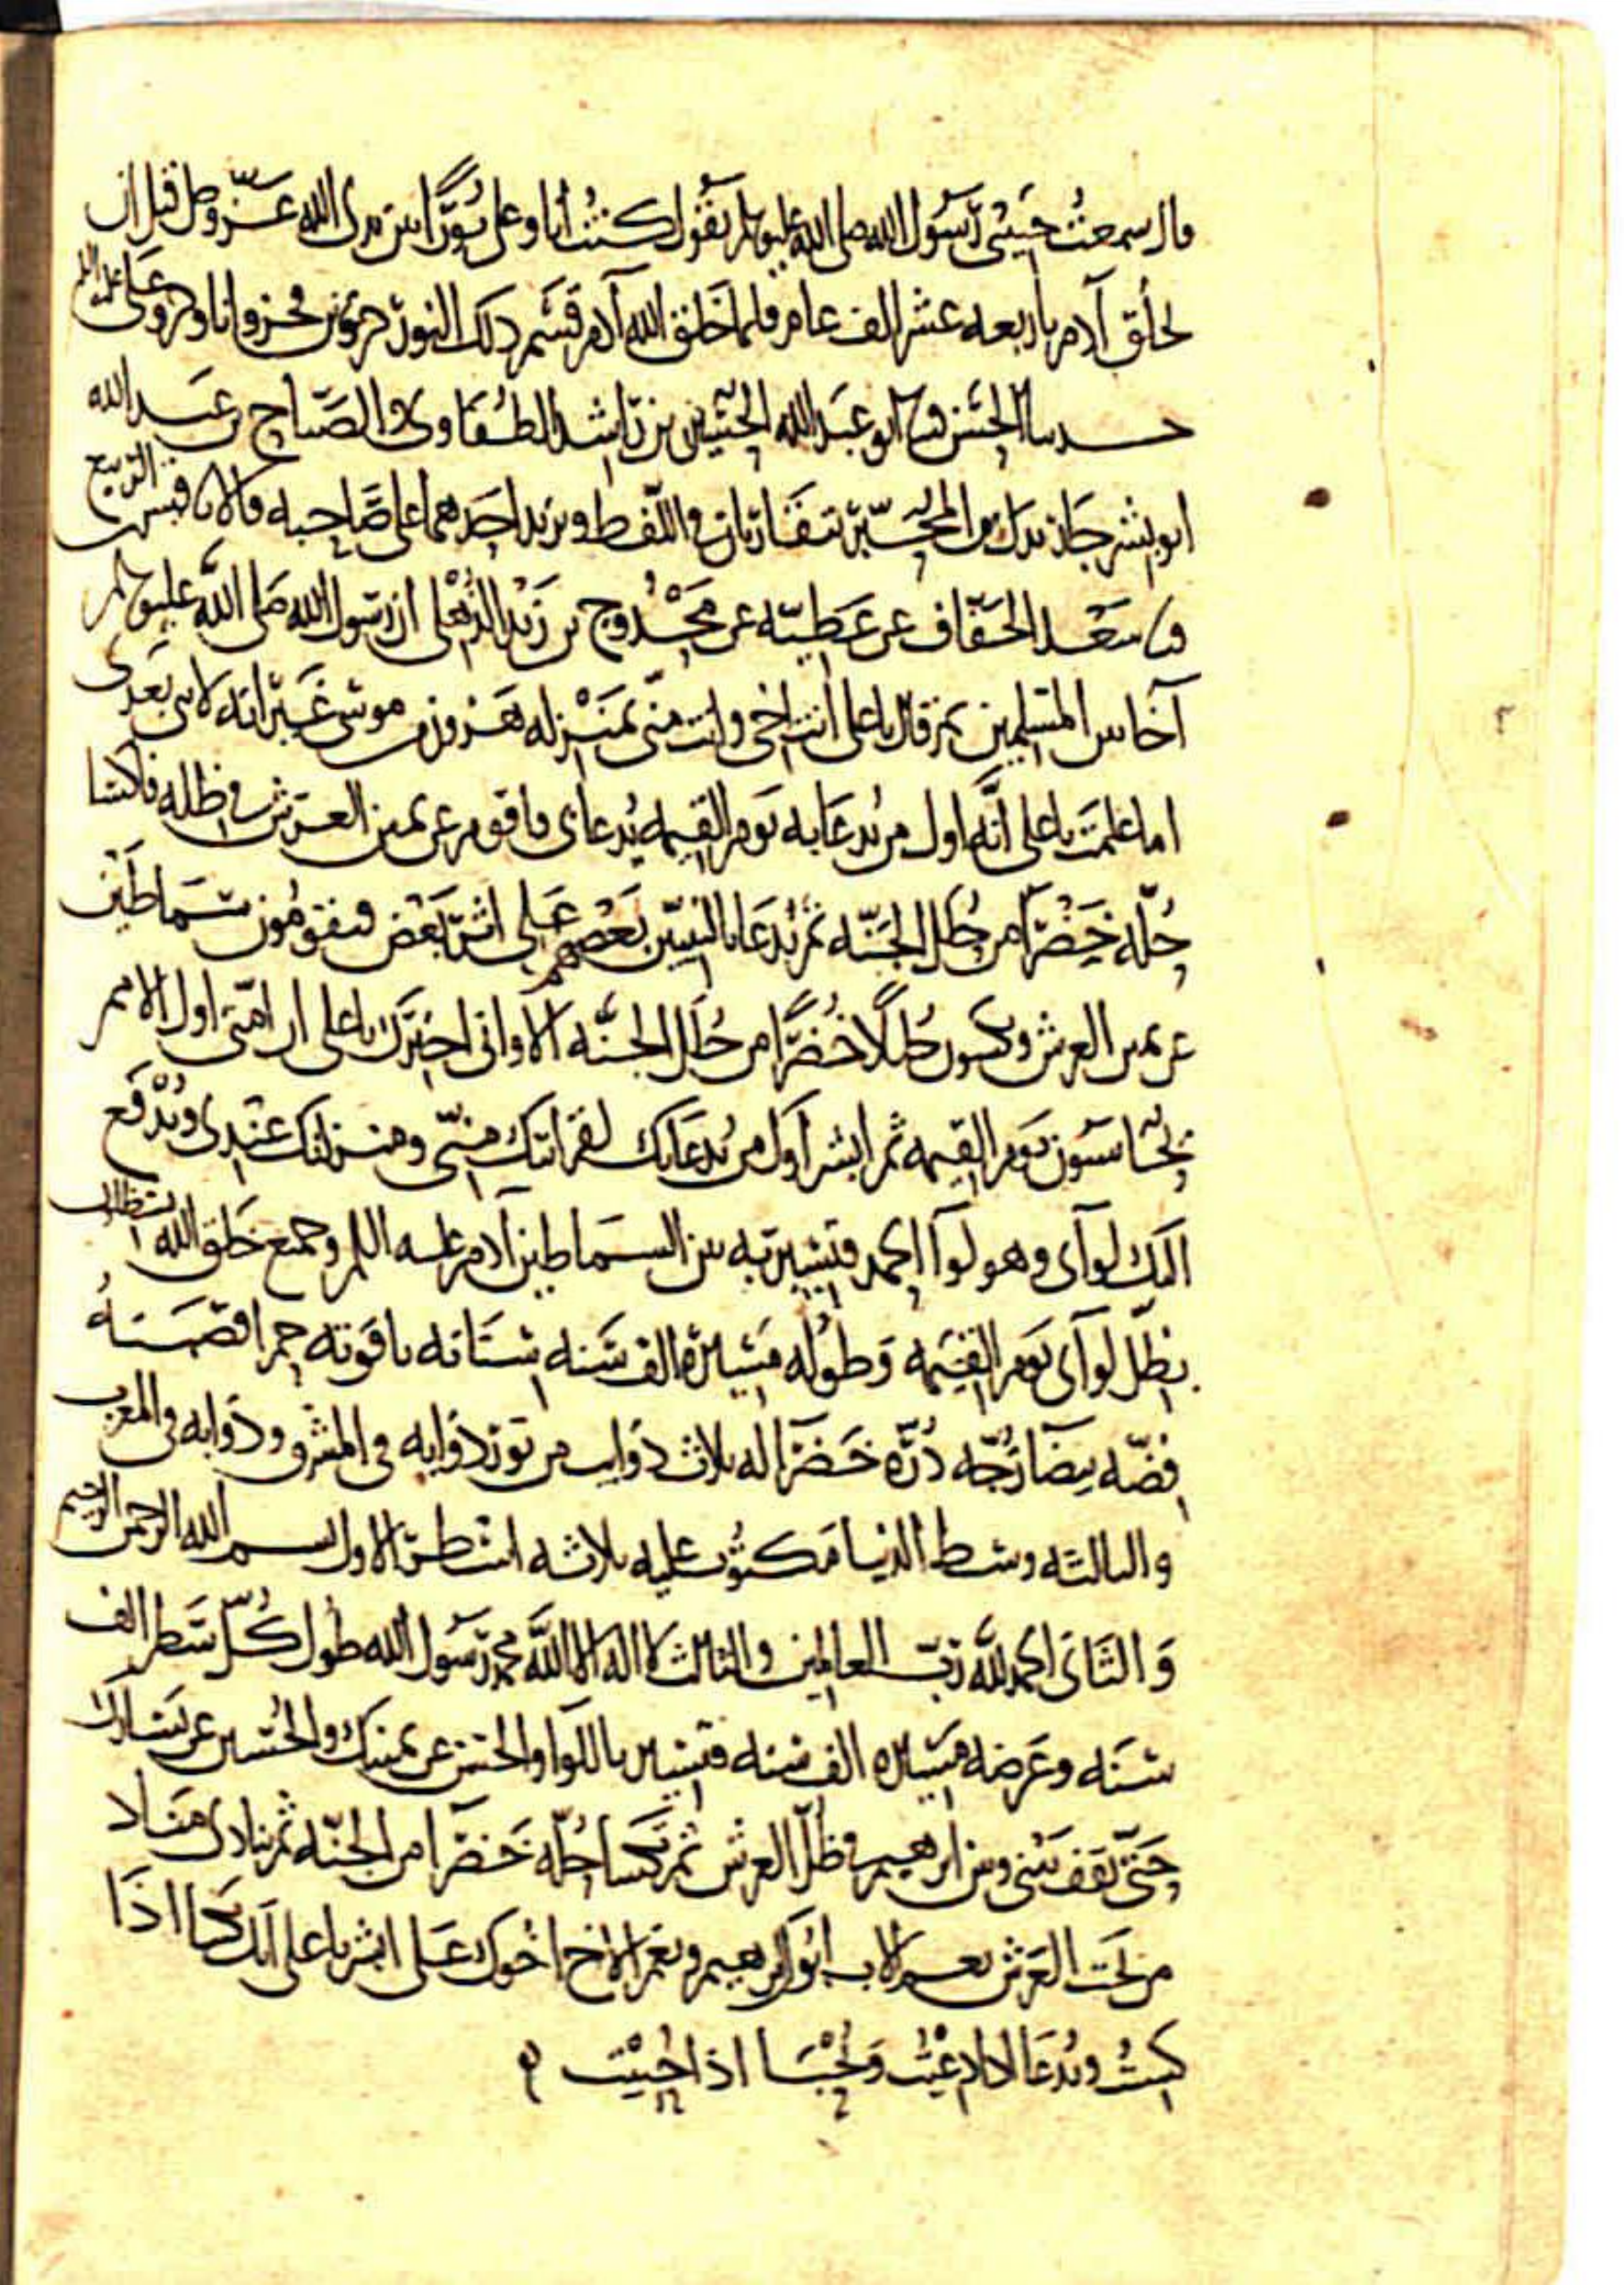 قال سمعت حبيبي رسول الله صلى الله عليه وسلم يقول كنت انا وعلي نورًا بين يدي الله عزّ وجل قبل ان
يخلق آدم باربعه عشر الف عام فلما خلق الله آدم قسم ذلك النور جزوين فجزو انا وجزو على عليه السلم
حدسا الحسن ابو عبد الله الحسين بن راشد الطفاوى والصّباح بن عبد الله
ابو بشر جاران بدل بن المحبّر يتقاربان في اللفظ ويزيد احدهما على صاحبه قالا نا قيس بن الربيع
نا سعد الخفّاف عن عطيّه عن مَحْدُوج بن زَيْد الذُّهْلي ان رسول الله صلى الله عليه وسلم
آخا بين المسلمين ثم قال يا على انت اخى وانت منّى بمَنْزله هرون من موسى غير انه لا نبى بعدى
اما علمت يا على انّه اول من يُدعا به يوم القيمه يُدعا بى فاقوم عن يمين العرش في ظله فاكسا
حُلّه خَضْرا من حُلل الجَنّه ثم يُدعا بالنبيّين بعضهم على اثر بَعْض فيقومون سماطَين
عن يمين العرش ويكسون حُللًا خُضْرًا من حُلَل الجنّه الا وانى اخبرك يا على ان امّتى اول الامم
يحاسبون يوم القيمه ثم ابشر اول من يُدعا بك لقرابتك منّى ومنزلتك عندى ويُدْفَع
اليك لوآى وهو لوآ الحمد فتسير به بين السماطين آدم عليه السلم وجميع خلق الله يستظلون
بظلّ لوآى يوم القيمه وطوله مسيرة الف سَنه سنانه ياقوته حمرا قصبته
فضّه بيضا زُجّه دُرّه خَضْرا له ثلاث ذوايب من نور ذوابه فى المشرق وذوابه فى المغرب
والثالثه وسط الدنيا مكتوب عليه ثلاثه اسطر الاول بسم الله الرحمن الرحيم
وَالثانى الحمد لله ربّ العالمين والثالث لا اله الا الله محمد رسول الله طول كُلّ سَطر الف
سَنَه وعَرضه مسيره الف سنه فتسير باللوا والحسن عن يمينك والحُسين عن يسارك
حتّى تقف بينى وبين ابرهيم في ظلّ العرش ثم تكسا حُلّه خضرا من الجنّه ثم ينادى مناد
من تحت العرش نعم الاب ابوك ابرهيم ونعم الاخ اخوك على ابشر يا على انك تكسا اذا
كسيتُ وتُدعا اذا دُعيت وتُحْبَا اذا حُبيْت ه